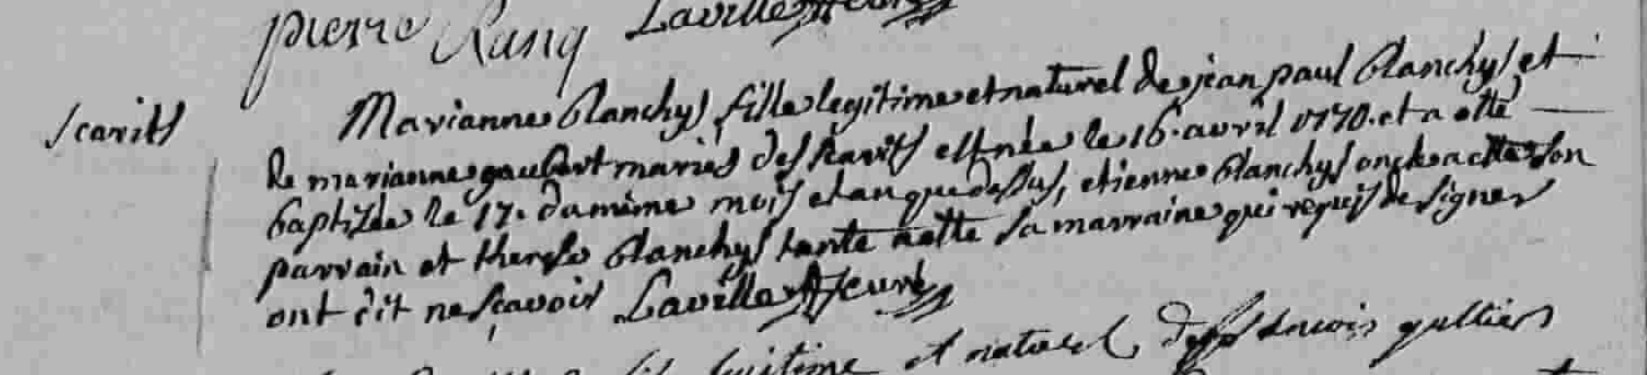 pierre Ranq Laville
Scarits
Marianne blanchys fille legitime et naturel de jean paul blanchys et
de marianne gaubert mariés des scarits est née le 16. avril 1770. et a etté
baptizée le 17. du meme mois et an que dessus, etienne blanchys oncle a etté son
parrain et therese blanchys tante a etté sa marraine qui requis de signer
ont dit ne scavoir Laville
legitime et naturel de gulliers